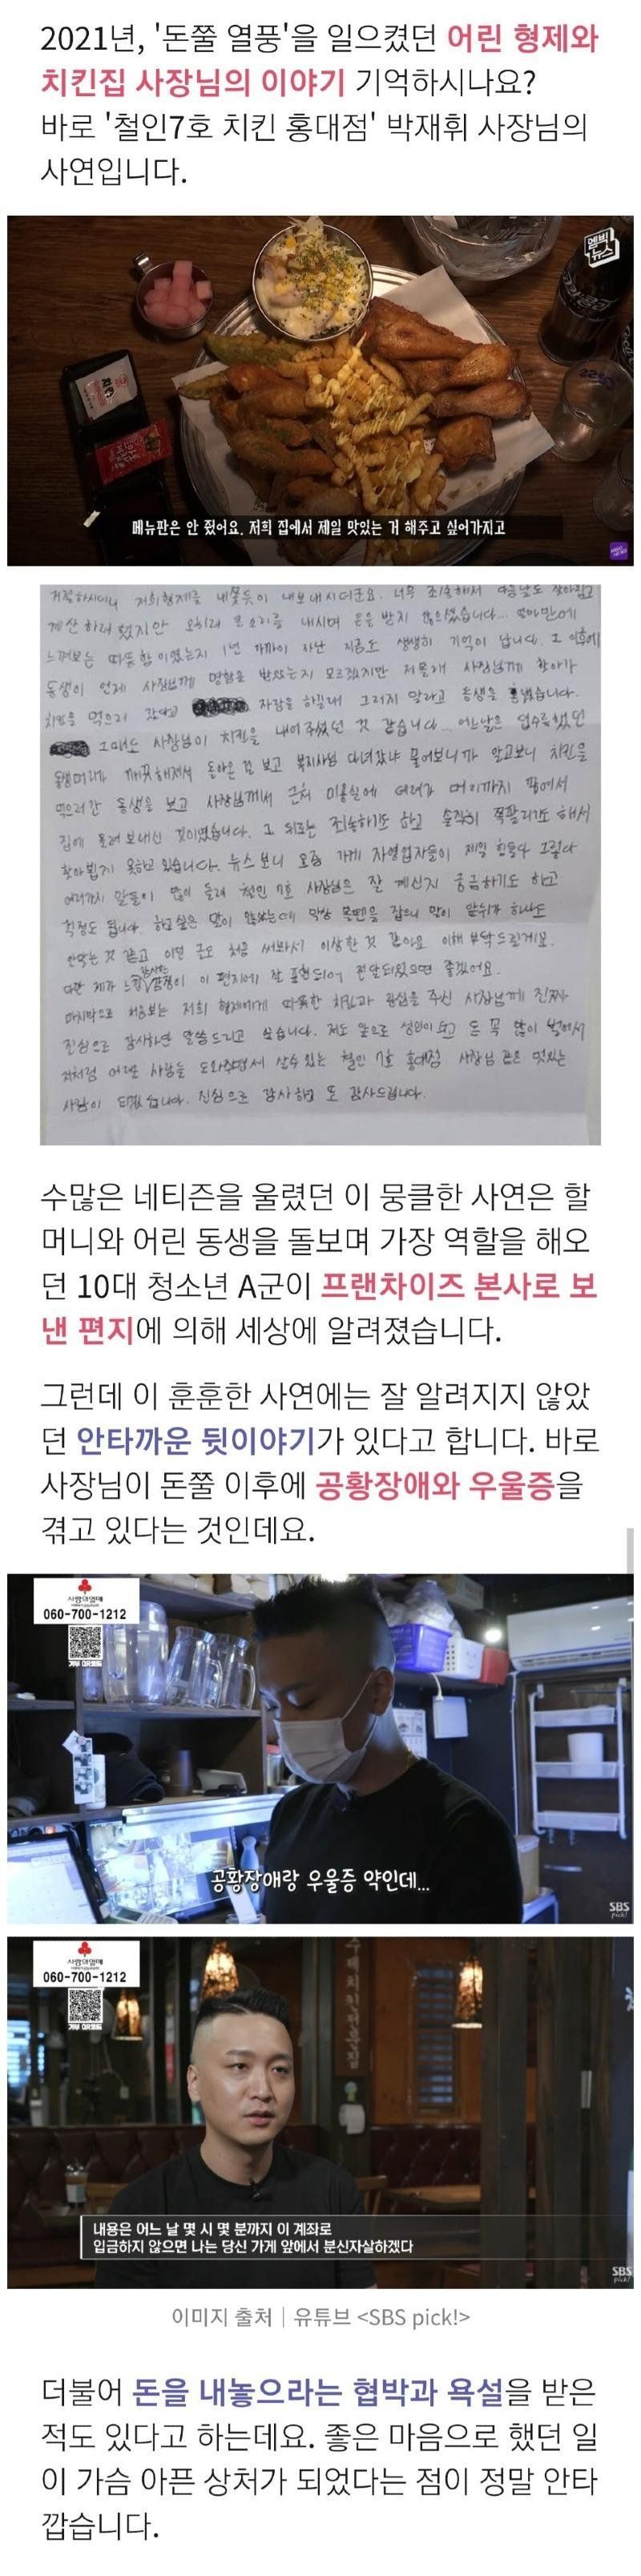 2021년, '돈쭐 열풍'을 일으켰던 어린 형제와
치킨집 사장님의 이야기 기억하시나요?
바로 '철인7호 치킨 홍대점' 박재휘 사장님의
사연입니다.
엠빅
뉴스
메뉴판은 안 줬어요. 저희 집에서 제일 맛있는 거 해주고 싶어가지고
거절하시더니 저희형제를 내쫓듯이 내보내시더군요. 너무 죄송해서 다음날도 찾아뵙고
계산하려 했지만 오히려 큰소리를 내시며 돈을 받지 않으셨습니다... 얼마만에
느껴보는 따뜻함이였는지 1년 가까이 지난 지금도 생생히 기억이 납니다. 그 이후에
동생이 언제 사장님께 명함을 받았는지 모르겠지만 저몰래 사장님께 찾아가
치킨을 먹으러 갔다고 자랑을 하길래 그러지 말라고 동생을 혼냈습니다.
그때도 사장님이 치킨을 내어주셨던 것 같습니다... 어느날은 덥수룩했던
동생머리가 깨끗해져서 돌아온 걸 보고 복지사님 다녀갔냐 물어보니까 알고보니 치킨을
먹으러간 동생을 보고 사장님께서 근처 미용실에 데려가 머리까지 깎여서
집에 돌려 보내신 것이였습니다. 그 뒤로는 죄송하기도 하고 솔직히 쪽팔리기도 해서
찾아뵙지 못하고 있습니다. 뉴스보니 요즘 가게 자영업자들이 제일 힘들다 그렇다
여러가지 말들이 많이 들려 철인 7호 사장님은 잘 계신지 궁금하기도 하고
걱정도 됩니다. 하고싶은 말이 많았는데 막상 볼펜을 잡으니 말이 앞뒤가 하나도
안맞는 것 같고 이런 글도 처음 써봐서 이상한 것 같아요 이해 부탁드릴게요.
다만 제가 느낀 감사한 감정이 이 편지에 잘 표현되어 전달되었으면 좋겠어요.
마지막으로 처음보는 저희 형제에게 따뜻한 치킨과 관심을 주신 사장님께 진짜
진심으로 감사하단 말씀드리고 싶습니다. 저도 앞으로 성인이 되고 돈 꼭 많이 벌어서
저처럼 어려운 사람들 도와주면서 살수있는 철인 7호 홍대점 사장님 같은 멋있는
사람이 되겠습니다. 진심으로 감사하고 또 감사드립니다.
수많은 네티즌을 울렸던 이 뭉클한 사연은 할
머니와 어린 동생을 돌보며 가장 역할을 해오
던 10대 청소년 A군이 프랜차이즈 본사로 보
낸 편지에 의해 세상에 알려졌습니다.
그런데 이 훈훈한 사연에는 잘 알려지지 않았
던 안타까운 뒷이야기가 있다고 합니다. 바로
사장님이 돈쭐 이후에 공황장애와 우울증을
겪고 있다는 것인데요.
사랑의열매
060-700-1212
기부 QR코드
공황장애랑 우울증 약인데...
SBS
pick!
사랑의열매
060-700-1212
기부 QR코드
내용은 어느 날 몇 시 몇 분까지 이 계좌로
입금하지 않으면 나는 당신 가게 앞에서 분신자살하겠다
SBS
pick!
이미지 출처 | 유튜브 <SBS pick!>
더불어 돈을 내놓으라는 협박과 욕설을 받은
적도 있다고 하는데요. 좋은 마음으로 했던 일
이 가슴 아픈 상처가 되었다는 점이 정말 안타
깝습니다.